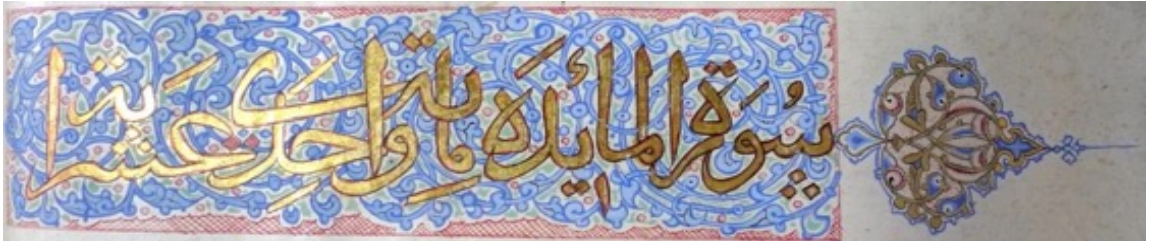 سُورَة المائدَة ماية واحِدَى عشر اية